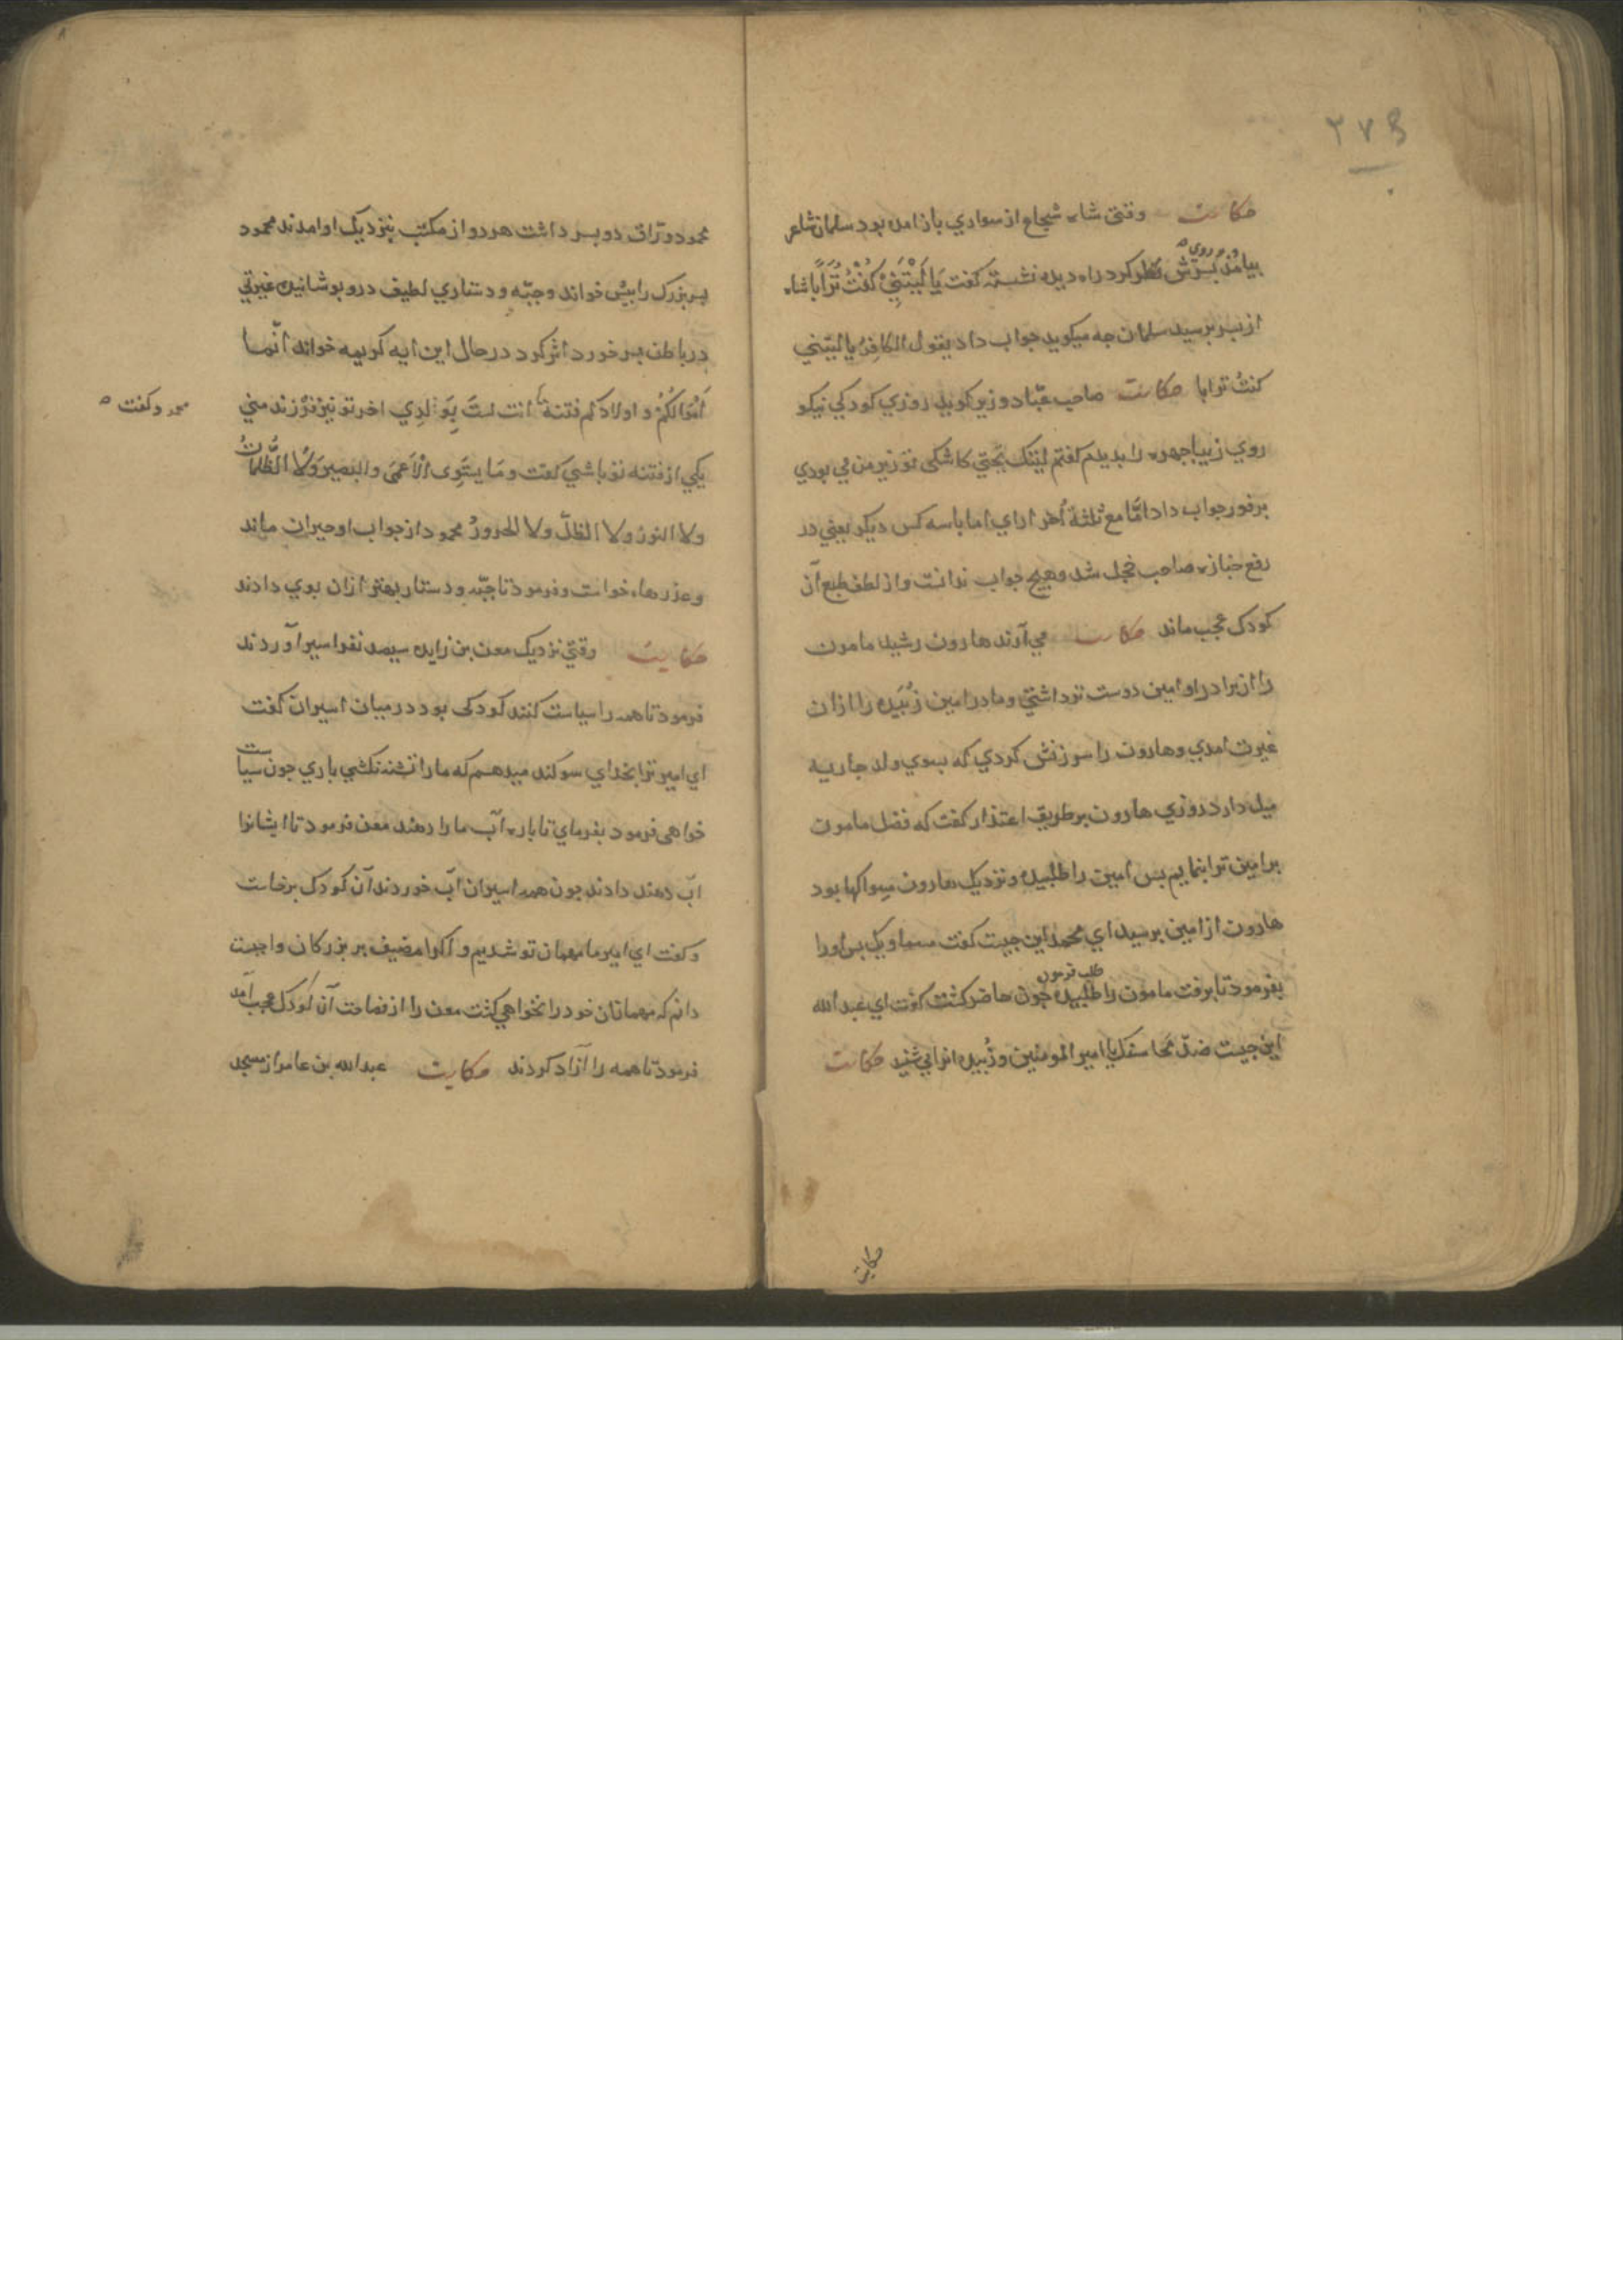 ۲۷۹
حکایت وقتی شاه شجاع از سواری باز آمده بود سلمان شاعر
بیامد و بر روی پسرش نظر کرد راه دیده نشسته گفت یَا لَیْتَنِیْ کُنْتُ تُرَاباً شاه
از پسر برسید سلمان جه میکوید جواب داد یقول الکافِرُ یا لیتنی
کنتُ ترابا حکایت صاحب عبّاد وزیر کوید روزی کودکی نیکو
روی زیبا جهره را بدیدم کفتم لیتک تحتی کاشکی تو زیر من می بودی
برفور جواب داد امّا مع ثلثة اُخر ای اما با سه کس دیکر یعنی در
رفع جنازه صاحب خجل شد و هیچ جواب ندانست و از لطف طبع آن
کودک عجب ماند حکایت می آرند هارون رشید مامون
را از برادر او امین دوست تر داشتی و مادر امین زُبَیده را ازان
غیرت امدی و هارون را سرزنش کردی که بسوی ولد جاریه
میل دارد روزی هارون بر طریق اعتذار کفت که فضل مامون
بر امین ترا بنمایم بس امین را طلبیده و نزدیک هارون مسواکها بود
هارون از امین برسید ای محمد این جیست کفت مساویک بس او را
بفرمود تا برفت مامون را طلب فرمود جون حاضر کشت کفت ای عبد الله
این جیست ضدّ محاسنک یا امیر المومنین و زُبیده انرا می شنید حکایت
حکایت
محمود وراق دو بسر داشت هر دو از مکتب بنزدیک او امدند محمود
بسر بزرک را بیش خواند و جبّه و دستاری لطیف درو بوشانید غیرتی
در باطن بسر خورد اثر کرد در حال این ایه کریمه خواند انّما
اَمْوَالکُمْ و اولادکم فتنة انت لستَ بِوَلدِی اخر تو نیز فرزند منی
محمود کفت
یکی از فتنه تو باشی کفت و مَا یستَوِی الْاَعمَی و البصیر وَلَا الظُّلماتُ
ولا النورُ ولا الظلّ ولا الحرورُ محمود از جواب او حیران ماند
و عذرها خواست و فرمود تا جبّه و دستار بهتر ازان بوی دادند
حکایت وقتی نزدیک معن بن زایده سیصد نفر اسیر آوردند
فرمود تا همه را سیاست کنند کودکی بود در میان اسیران کفت
ای امیر ترا بخدای سوکند میدهم که ما را تشنه نکشی باری جون سیاست
خواهی فرمود بفرمای تا باره آب ما را دهند معن فرمود تا ایشانرا
آب دهند دادند جون همه اسیران آب خوردند آن کودک برخاست
و کفت ای امیر ما مهمان تو شدیم و اکرام ضیف بر بزرکان واجبست
دانم که مهمانان خود را نخواهی کشت معن را از فصاحت آن کودک عجب آمد
فرمود تا همه را آزاد کردند حکایت عبد الله بن عامر از مسجد